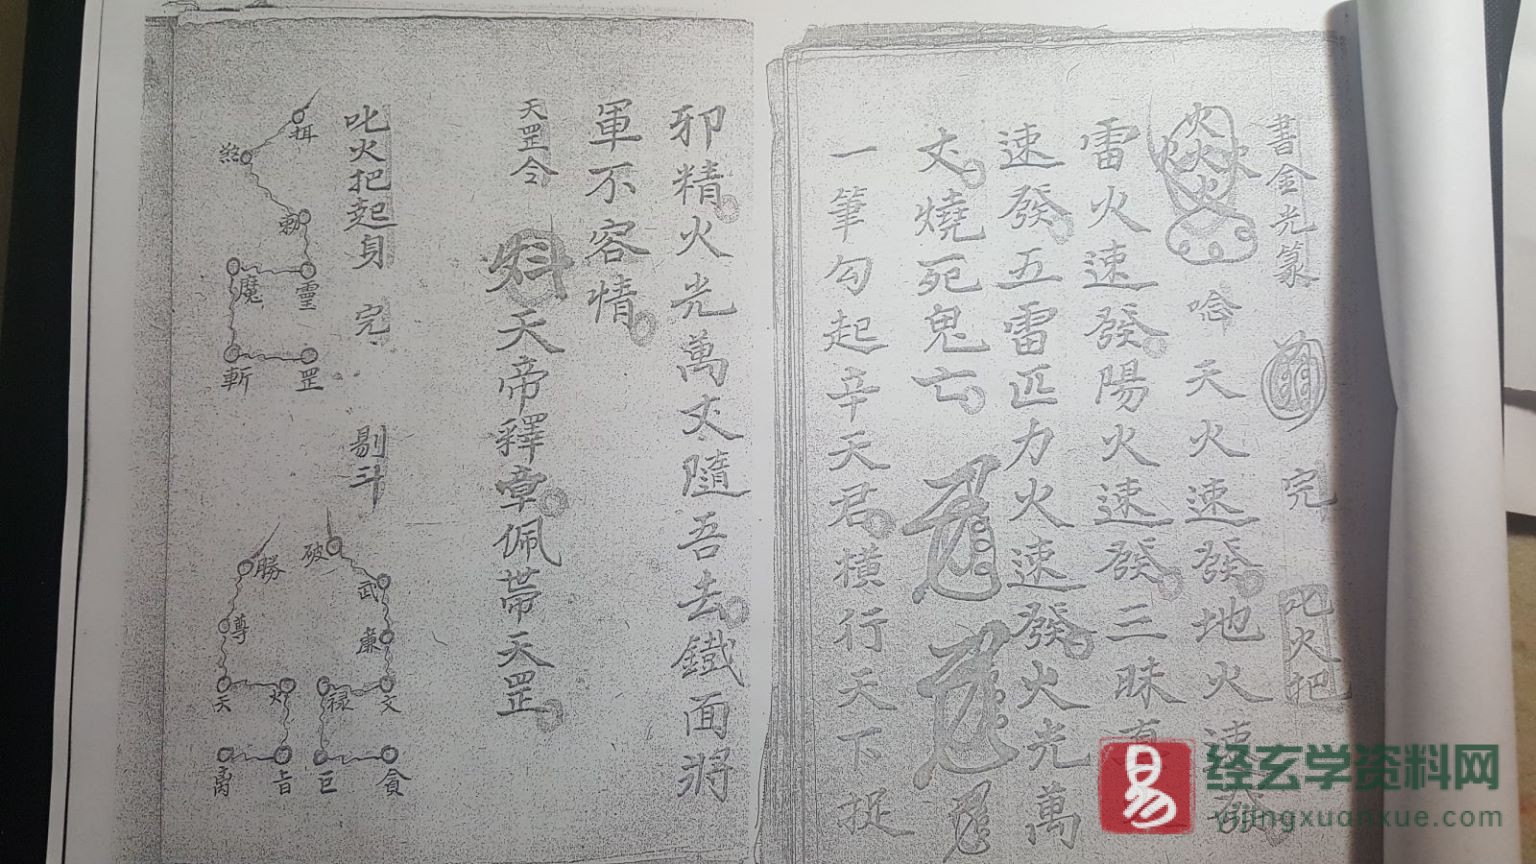 書金光篆 完 叱火把
火火火火火 唸天火速發地火速發
雷火速發陽火速發三昧真
速發五雷匹力火速發火光萬
丈燒死鬼亡
一筆勾起辛天君橫行天下捉
邪精火光萬丈隨吾去鐵面將
軍不容情
天罡令 天帝釋章佩帶天罡
叱火把起身 完 剔斗
煞
魔
靈
斬
罡
破
勝
武
尊
廉
天
祿
文
巨
貪
易 经玄学资料网
yijingxuanxue.com